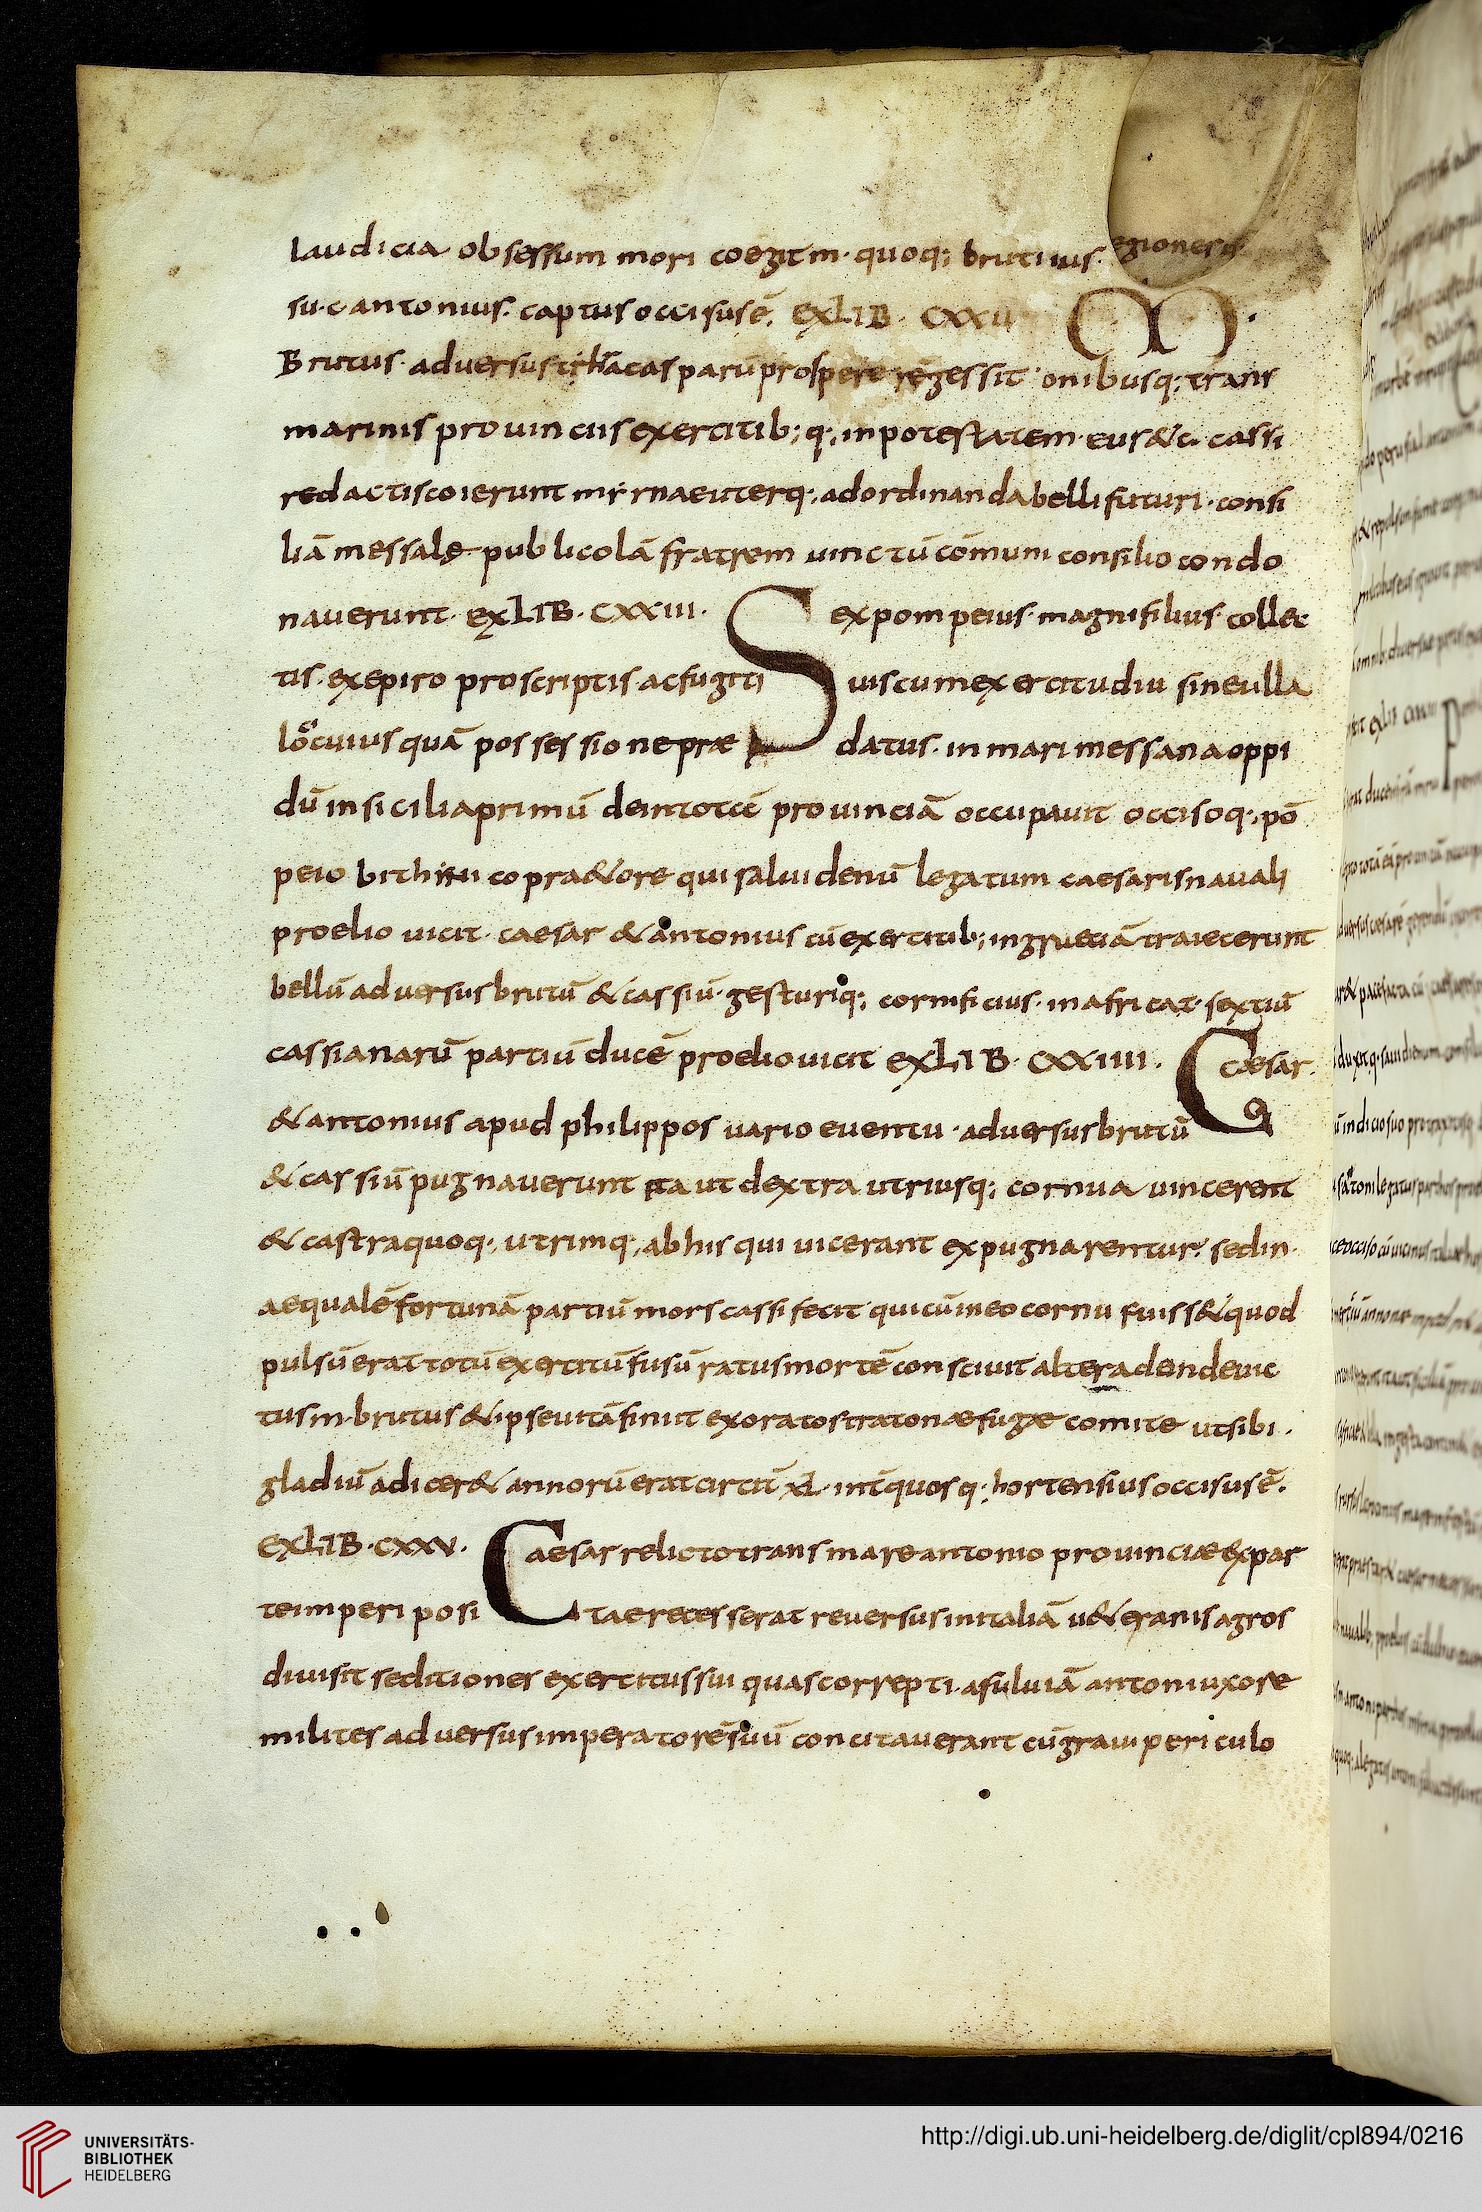 laudicia obsessum mori coegit m· quoq; brutiuis· egionesq
su·c antonius· captus occisus ē· EXLIB· CXXII M·
Brutus· adversus trhācas parū prospere rē gessit onibusq; trans
marinis prouinciis exercitib; q; in potestatem eius & c· cassi
redactis coierunt myrnae uterq; ad ordinanda belli futuri· consi
liā messalę publicolā fratrem uinctū cōmuni consilio condo
naverunt· EXLIB· CXXIII· Sex pompeius· magni filius· collec
tis· ex epiro proscriptis ac fugiti uis cum exercitu diu sine ulla
loci cuius quā possessione præ datus· in mari messana oppi
dū in sicilia primū dein totcē prouinciā occupauit occisoq; pō
peio bithinico pra&ore qui saluidenū legatum caesaris nauali
proelio uicit· caesar & antonius cū exercitib; in gruetiā traiecerunt
bellū adversus brutū & cassiū· gesturiq; cornificius· in africa t· sextiū
cassianarū partiū ducē proelio uicit EXLIB· CXXIIII· C caesar·
& antonius apud philippos uario euentu· adversus brutū
& cassiū pugnaverunt ita ut dextra utriusq; cornua uincerent
& castra quoq; utrimq; ab his qui uicerant expugnarentur· sed in·
aequalē fortunā partiū mors cassi fecit qui cū in eo cornu fuiss& quod
pulsū erat totū exercitū fusū ratus mortē consciuit altera dein deuic
tus m·brutus & ipse uitā finiit exorato stratonæ fugæ comite ut sibi·
gladiū adicer& annorū erat circit XL· int quos q· hortensius occisus ē·
EXLIB· CXXV· Caesar relicto trans mare antonio prouinciæ ex par
te imperi posi tae recesserat reuersus in italiā u&eranis agros
diuisit seditiones exercitus sui quas correpti· a fuluiā antoni uxore
milites adversus imperatorē suū concitaverant cū graui periculo
UNIVERSITÄTS-
BIBLIOTHEK
HEIDELBERG
http://digi.ub.uni-heidelberg.de/diglit/cpl894/0216